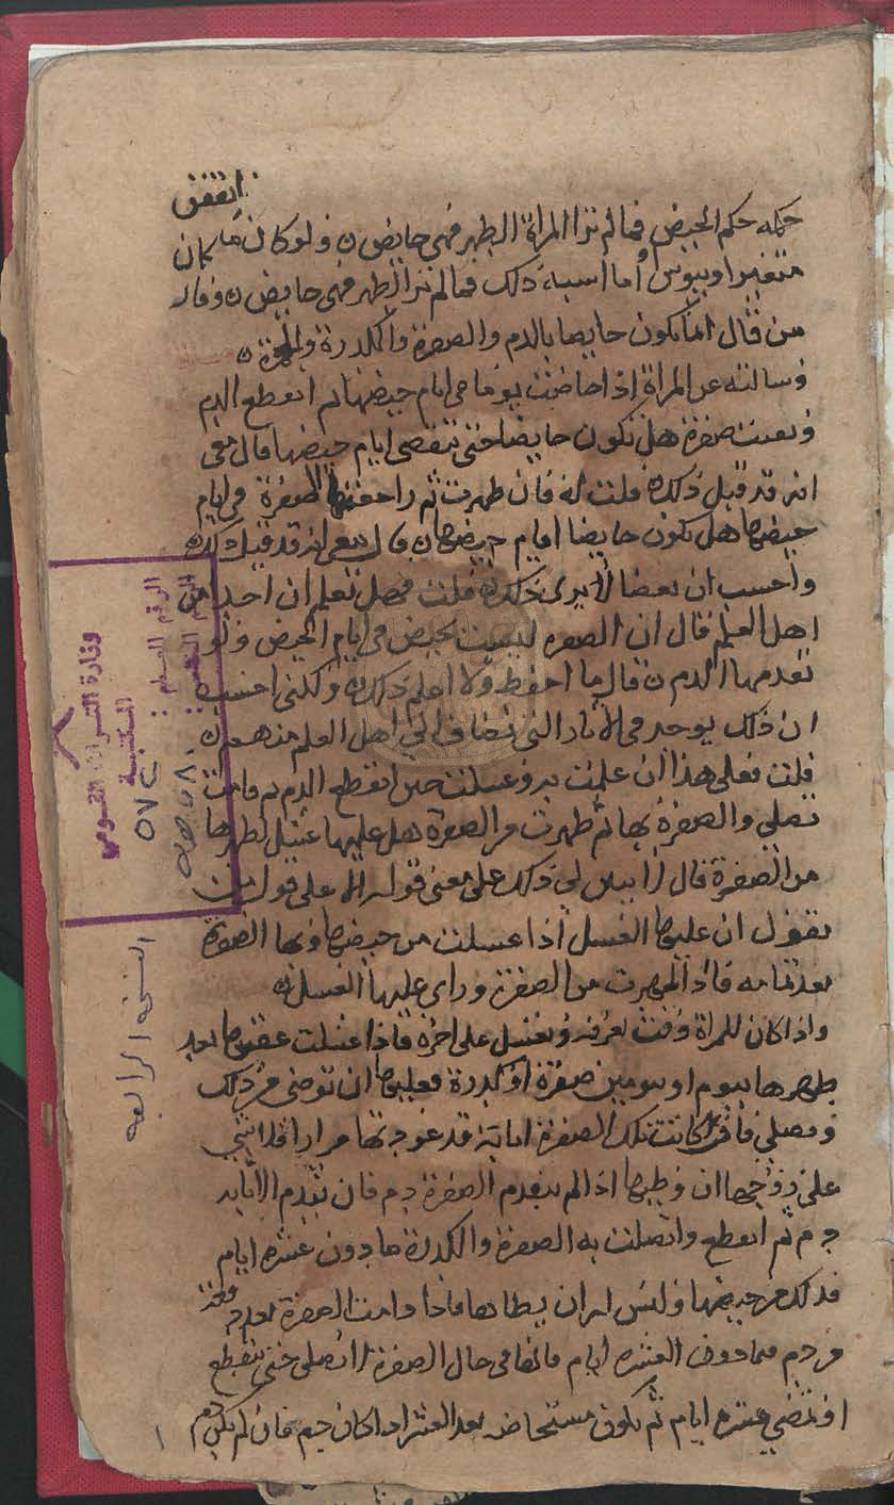 اتفقن
حكمه حكم الحيض فما لم ترا المراة الطهر فهي حايض ن ولو كان ما كان
متغيرا او يبوس أو ما أشبه ذلك فما لم ترا الطهر فهي حايض ن وقال
من قال انما تكون حايضا بالدم والصفرة والكدرة والحمرة ن
وسالته عن المراة اذا حاضت يوما في ايام حيضها ثم انقطع الدم
وبقيت صفرة هل تكون حايضا حتى تنقضي ايام حيضها قال معي
انه قد قيل ذلك ن قلت له فان طهرت ثم راجعتها الصفرة في ايام
حيضها هل تكون حايضا ايام حيضها ن قال معي انه قد قيل ذلك
واحسب ان بعضا لا يرى ذلك ن قلت فهل تعلم ان احدا من
اهل العلم قال ان الصفره ليست بحيض في ايام الحيض ولو
تقدمها الدم ن قال ما احفظ ولا اعلم ذلك ن ولكني احسب
ان ذلك يوجد في الاثار التي تضاف الى اهل العلم منهم ن
قلت فعلى هذا ان علمت به وغسلت حين انقطع الدم ثم قامت
تصلي والصفرة بها ثم طهرت من الصفرة هل عليها غسل لطهرها
من الصفرة قال لا يبين لي ذلك على معنى قوله الا على قول من
يقول ان عليها الغسل اذا غسلت من حيضها وبها الصفرة
بعد تمامه فاذا طهرت من الصفرة وراى عليها الغسل ن
واذا كان للمراة وقت تعرفه وتغتسل على اخره فاذا اغتسلت عقبها بعد
طهرها بيوم او يومين صفرة او كدرة فعليها ان توضى من ذلك
وتصلي فان كانت تلك الصفرة اثابة قد عودتها مرارا فلا
على زوجها ان وطيها اذا لم يتقدم الصفرة دم فان تقدم الاثابه
دم ثم انقطع واتصلت به الصفرة والكدرة ما دون عشره ايام
فذلك من حيضها وليس له ان يطاها فاذا دامت الصفرة بعد
من دم فما دون العشره ايام فانها في حال الصفرة لا تصلي حتى تنقطع
او تمضي عشرة ايام ثم تكون مستحاضه بعد العشر اذا كان دم فان لم يكن دم
١
وزارة التراث القومي
المكتبة
الرقم العام :
٥٧ ج
النسخة الرابعة